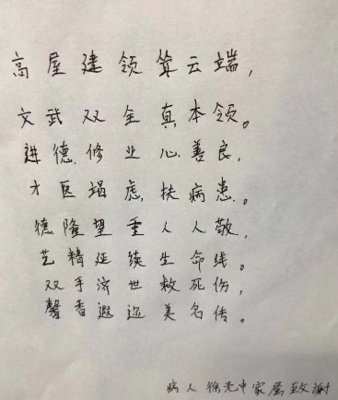 高屋建领算云端，
文武双全真本领。
进德修业心善良，
才医竭虑扶病患。
德隆望重人人敬，
艺精延续生命线。
双手济世救死伤，
馨香遐迩美名传。
病人徐先中家属致谢